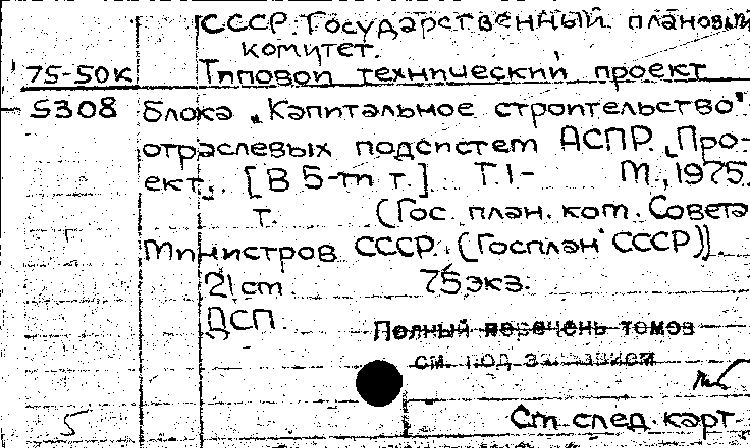 СССР. Государственный плановый
комитет.
75-50к Типовой технический проект
5308 блока „Капитальное строительство"
отраслевых подсистем АСПР. Про-
ект. [В 5-ти т.] Т. 1- М., 1975.
т. (Гос. план. ком. Совета
Министров СССР. (Госплан СССР))
21 см. 75 экз.
ДСП.
Полный перечень томов
см. под заглавием
5 См. след. карт.